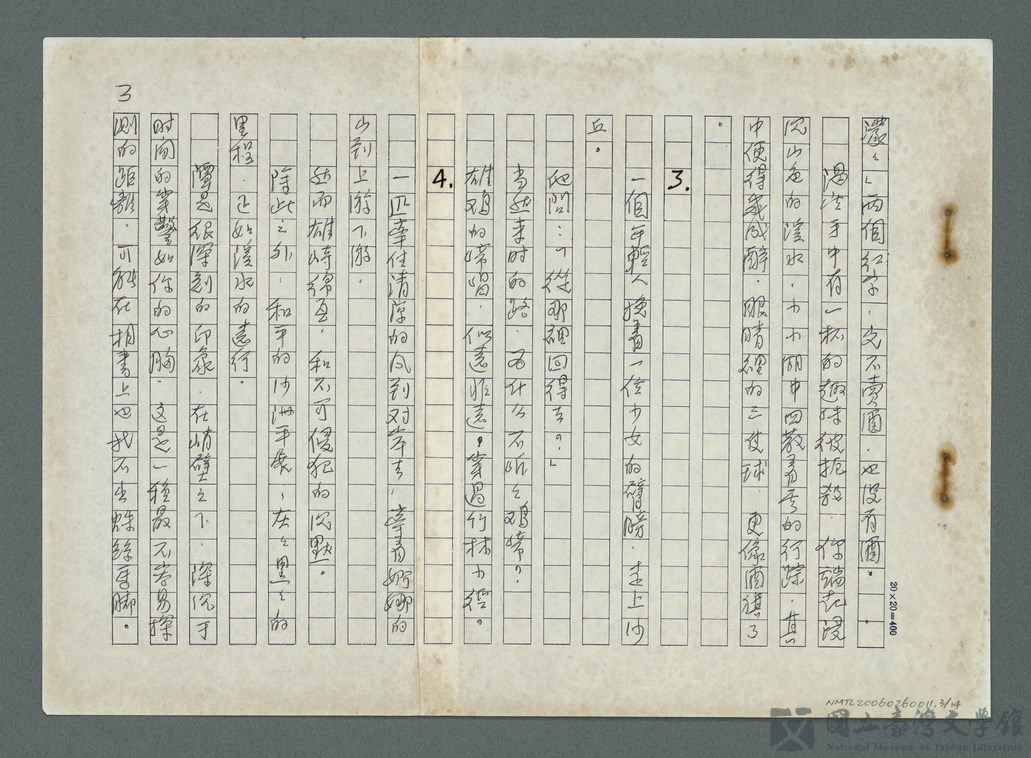 濛々」兩個紅字．它不賣酒．也沒有酒．
渴法手中有一杯的趣味被扼殺．你端起浸
沉山色的溪水．小小湖中回教青云的行踪．其
中便得幾成醉．眼睛裡的三炷球 更像酒旗了
。
3.
一個年輕人挽着一位少女的臂膀．走上沙
丘。
他問：「從那裡回得去？」
当然来時的路．為什么不听之鷄啼？
雄鷄的啼唱．似遠非遠，穿過竹林小徑。
4.
一匹牽住清凉的風到对岸去．牽着婀娜的
山到上游下游．
然而雄峙綿亘．和不可侵犯的沉默。
除此之外．和平的沙洲平展，灰々黑々的
里程．正如溪水的遠行。
潭是很深刻的印象．在峭壁之下．深沉于
时间的穿鑿如你的心胸．这是一種最不容易探
测的距離．可能在相書上也找不出蛛絲馬脚。
3
20×20=400
NMTL20060260011.3/14
國立臺灣文學館
National Museum of Taiwan Literature